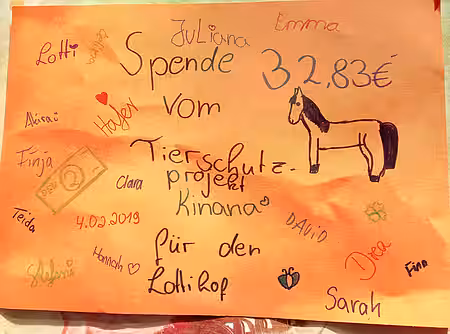 Juliana
Emma
Lotti
Spende
32,83€
vom
Hagen
Finja
Tierschutz-
projekt
Clara
Kinana
Teida
4.02.2019
DAViD
für den
Hannah
Lottihof
Stefani
Drea
Finn
Sarah